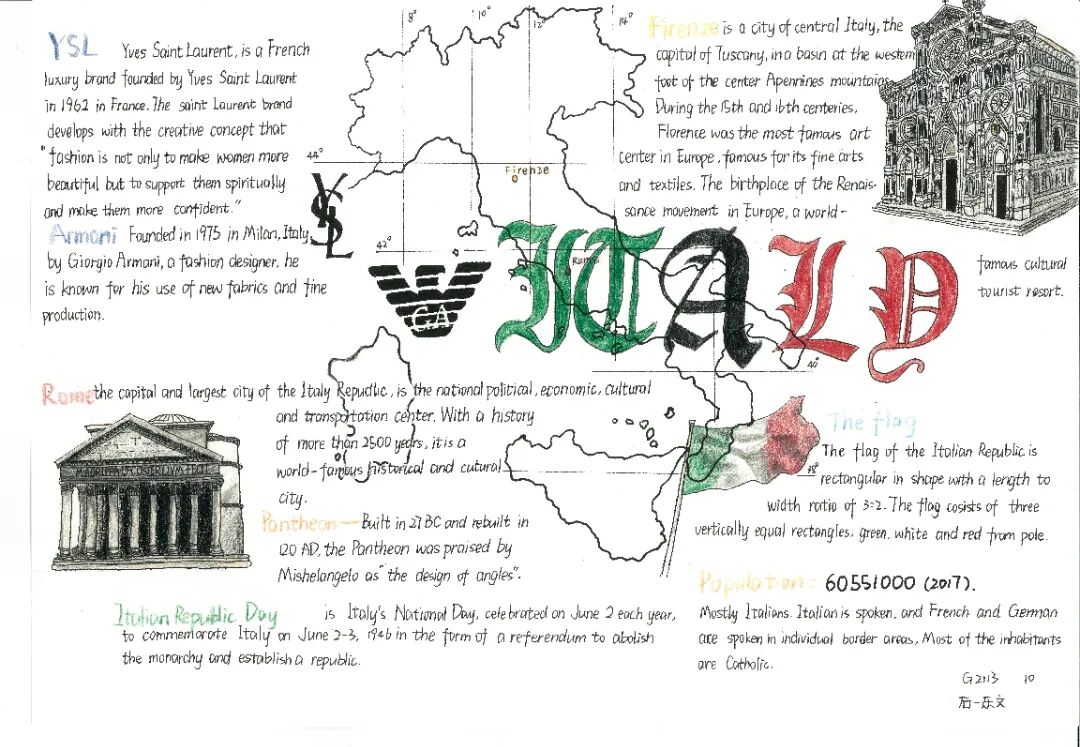 YSL Yves Saint Laurent, is a French
luxury brand founded by Yves Saint Laurent
in 1962 in France. The saint Laurent brand
develops with the creative concept that
"fashion is not only to make women more
beautiful but to support them spiritually
and make them more confident."
Armani Founded in 1975 in Milan, Italy,
by Giorgio Armani, a fashion designer, he
is known for his use of new fabrics and fine
production.
8°
10°
12°
14°
44°
42°
40°
38°
Firenze
Roma
YSL
GA
ITALY
Firenze is a city of central Italy, the
capital of Tuscany, in a basin at the western
foot of the center Apennines mountains.
During the 15th and 16th centeries,
Florence was the most famous art
center in Europe, famous for its fine arts
and textiles. The birthplace of the Renais-
sance movement in Europe, a world-
famous cultural
tourist resort.
Rome the capital and largest city of the Italy Repudlic, is the national political, economic, cultural
and transportation center. With a history
of more than 2500 years, it is a
world-famous historical and cutural
city.
Pantheon — Built in 27 BC and rebuilt in
120 AD, the Pantheon was praised by
Mishelangelo as "the design of angles".
The flag
The flag of the Italian Republic is
rectangular in shape with a length to
width ratio of 3:2. The flag cosists of three
vertically equal rectangles, green, white and red from pole.
Italian Republic Day is Italy's National Day, celebrated on June 2 each year,
to commemorate Italy on June 2-3, 1946 in the form of a referendum to abolish
the monarchy and establish a republic.
Population: 60551000 (2017).
Mostly Italians. Italian is spoken, and French and German
are spoken in individual border areas, Most of the inhabitants
are Catholic.
G2113 10